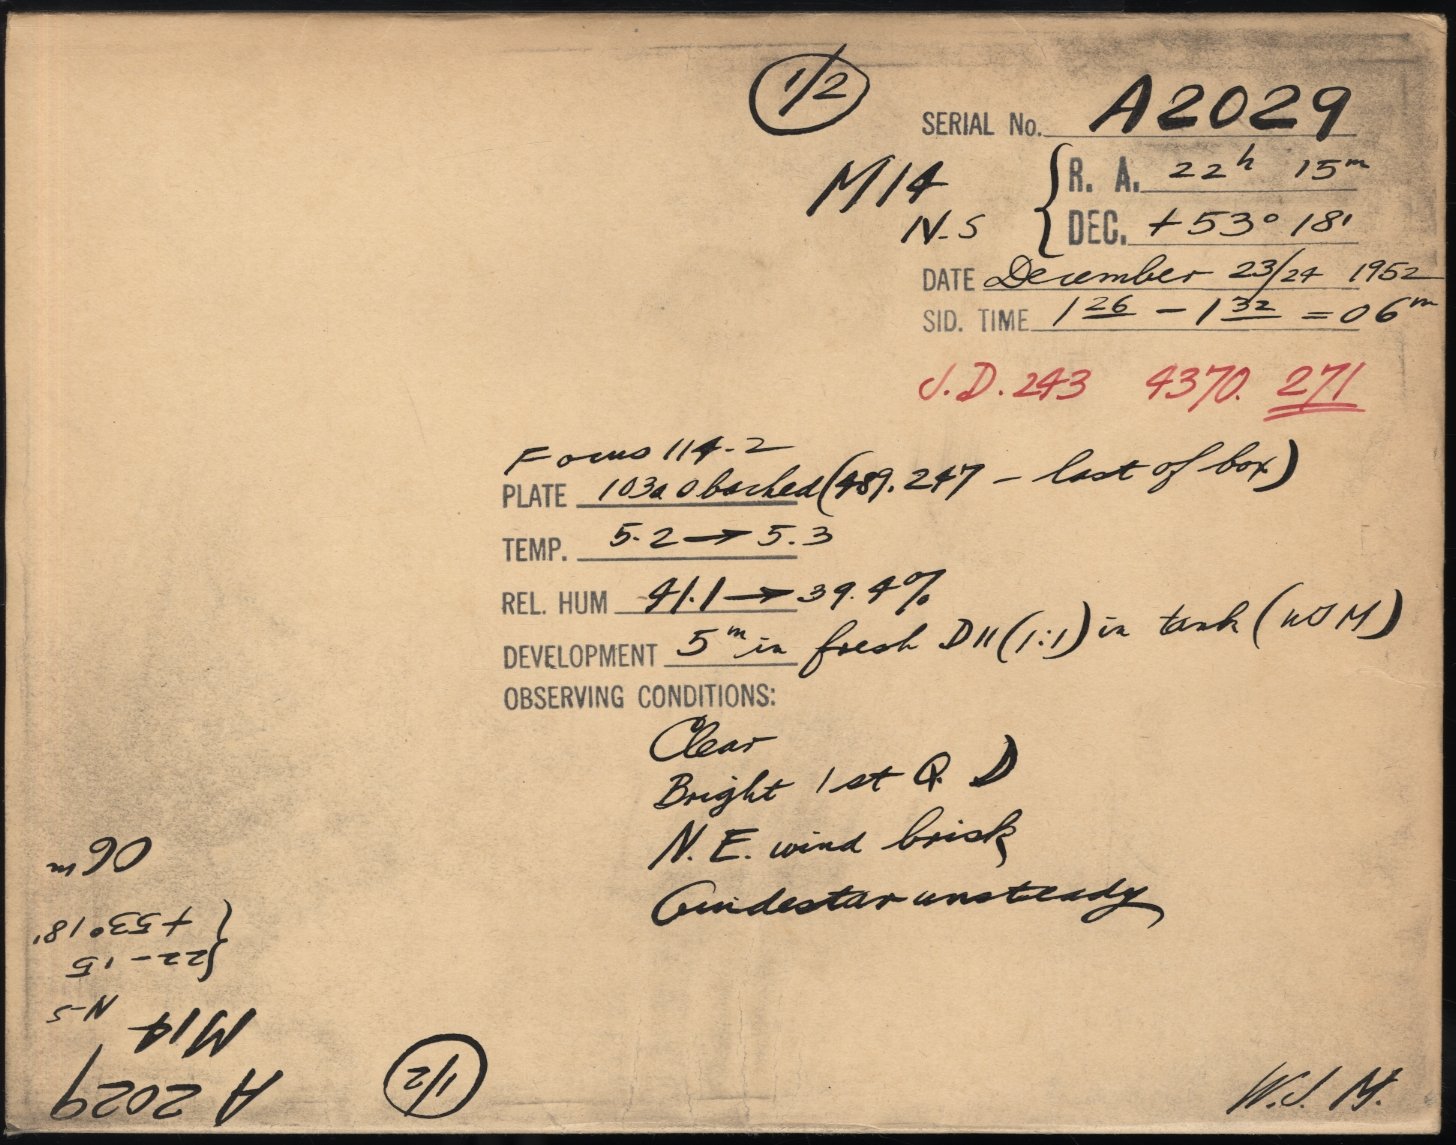 1/2
SERIAL No. A2029
M14
N-S
R. A. 22h 15m
DEC. +53° 18'
DATE December 23/24 1952
SID. TIME 1 26 - 1 32 = 06m
J.D. 243 4370. 271
Focus 114.2
PLATE 103a O backed (489.247 - last of box)
TEMP. 5.2 → 5.3
REL. HUM 41.1 → 39.4%
DEVELOPMENT 5m in fresh D11 (1:1) in tank (WJM)
OBSERVING CONDITIONS:
Clear
Bright 1st Q. D
N.E. wind brisk
Guidestar unsteady
W.J.M.
1/2
A 2029
M14
N-S
{22-15
+53° 18'
06m